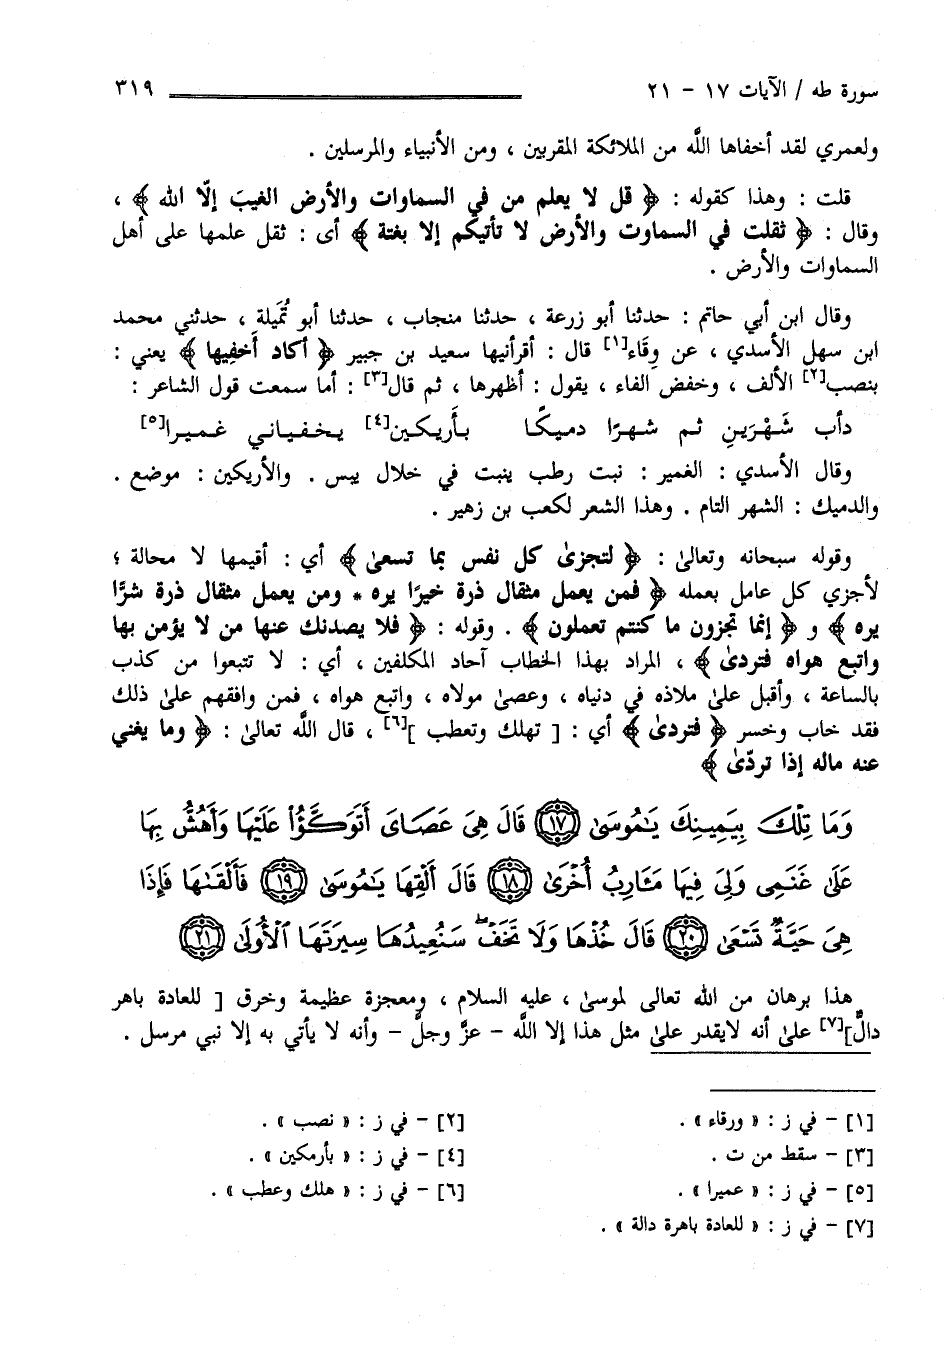 سورة طه / الآيات ١٧ - ٢١ ٣١٩
ولعمري لقد أخفاها اللَّه من الملائكة المقربين ، ومن الأنبياء والمرسلين .
قلت : وهذا كقوله : ﴿ قل لا يعلم من في السماوات والأرض الغيبَ إلّا الله ﴾ ،
وقال : ﴿ ثقلت في السماوت والأرض لا تأتيكم إلا بغتة ﴾ أى : ثقل علمها على أهل
السماوات والأرض .
وقال ابن أبي حاتم : حدثنا أبو زرعة ، حدثنا منجاب ، حدثنا أبو تُمَيلة ، حدثني محمد
ابن سهل الأسدي ، عن وِقَاء[١] قال : أقرأنيها سعيد بن جبير ﴿ أكاد أَخفِيها ﴾ يعني :
بنصب[٢] الألف ، وخفض الفاء ، يقول : أظهرها ، ثم قال[٣] : أما سمعت قول الشاعر :
دأب شَهْرَينِ ثم شهرًا دميكًا بأَريكين[٤] يخفياني غميرا[٥]
وقال الأسدي : الغمير : نبت رطب ينبت في خلال يبس . والأريكين : موضع .
والدميك : الشهر التام . وهذا الشعر لكعب بن زهير .
وقوله سبحانه وتعالىٰ : ﴿ لتجزىٰ كل نفس بما تسعىٰ ﴾ أي : أقيمها لا محالة ؛
لأجزي كل عامل بعمله ﴿ فمن يعمل مثقال ذرة خيرًا يره * ومن يعمل مثقال ذرة شرًّا
يره ﴾ و ﴿ إنما تجزون ما كنتم تعملون ﴾ . وقوله : ﴿ فلا يصدنك عنها من لا يؤمن بها
واتبع هواه فتردىٰ ﴾ ، المراد بهذا الخطاب آحاد المكلفين ، أي : لا تتبعوا من كذب
بالساعة ، وأقبل علىٰ ملاذه في دنياه ، وعصىٰ مولاه ، واتبع هواه ، فمن وافقهم علىٰ ذلك
فقد خاب وخسر ﴿ فتردىٰ ﴾ أي : [ تهلك وتعطب ][٦] ، قال اللَّه تعالىٰ : ﴿ وما يغني
عنه ماله إذا تردّىٰ ﴾
وَمَا تِلْكَ بِيَمِينِكَ يَٰمُوسَىٰ ١٧ قَالَ هِىَ عَصَاىَ أَتَوَكَّؤُا۟ عَلَيْهَا وَأَهُشُّ بِهَا
عَلَىٰ غَنَمِى وَلِىَ فِيهَا مَـَٔارِبُ أُخْرَىٰ ١٨ قَالَ أَلْقِهَا يَٰمُوسَىٰ ١٩ فَأَلْقَىٰهَا فَإِذَا
هِىَ حَيَّةٌ تَسْعَىٰ ٢٠ قَالَ خُذْهَا وَلَا تَخَفْ ۖ سَنُعِيدُهَا سِيرَتَهَا ٱلْأُولَىٰ ٢١
هذا برهان من الله تعالى لموسىٰ ، عليه السلام ، ومعجزة عظيمة وخرق [ للعادة باهر
دالٌّ][٧] علىٰ أنه لايقدر علىٰ مثل هذا إلا اللَّه - عزَّ وجلَّ - وأنه لا يأتي به إلا نبي مرسل .
[١] - في ز : « ورقاء » . [٢] - في ز : « نصب » .
[٣] - سقط من ت . [٤] - في ز : « بأرمكين » .
[٥] - في ز : « عميرا » . [٦] - في ز : « هلك وعطب » .
[٧] - في ز : « للعادة باهرة دالة » .